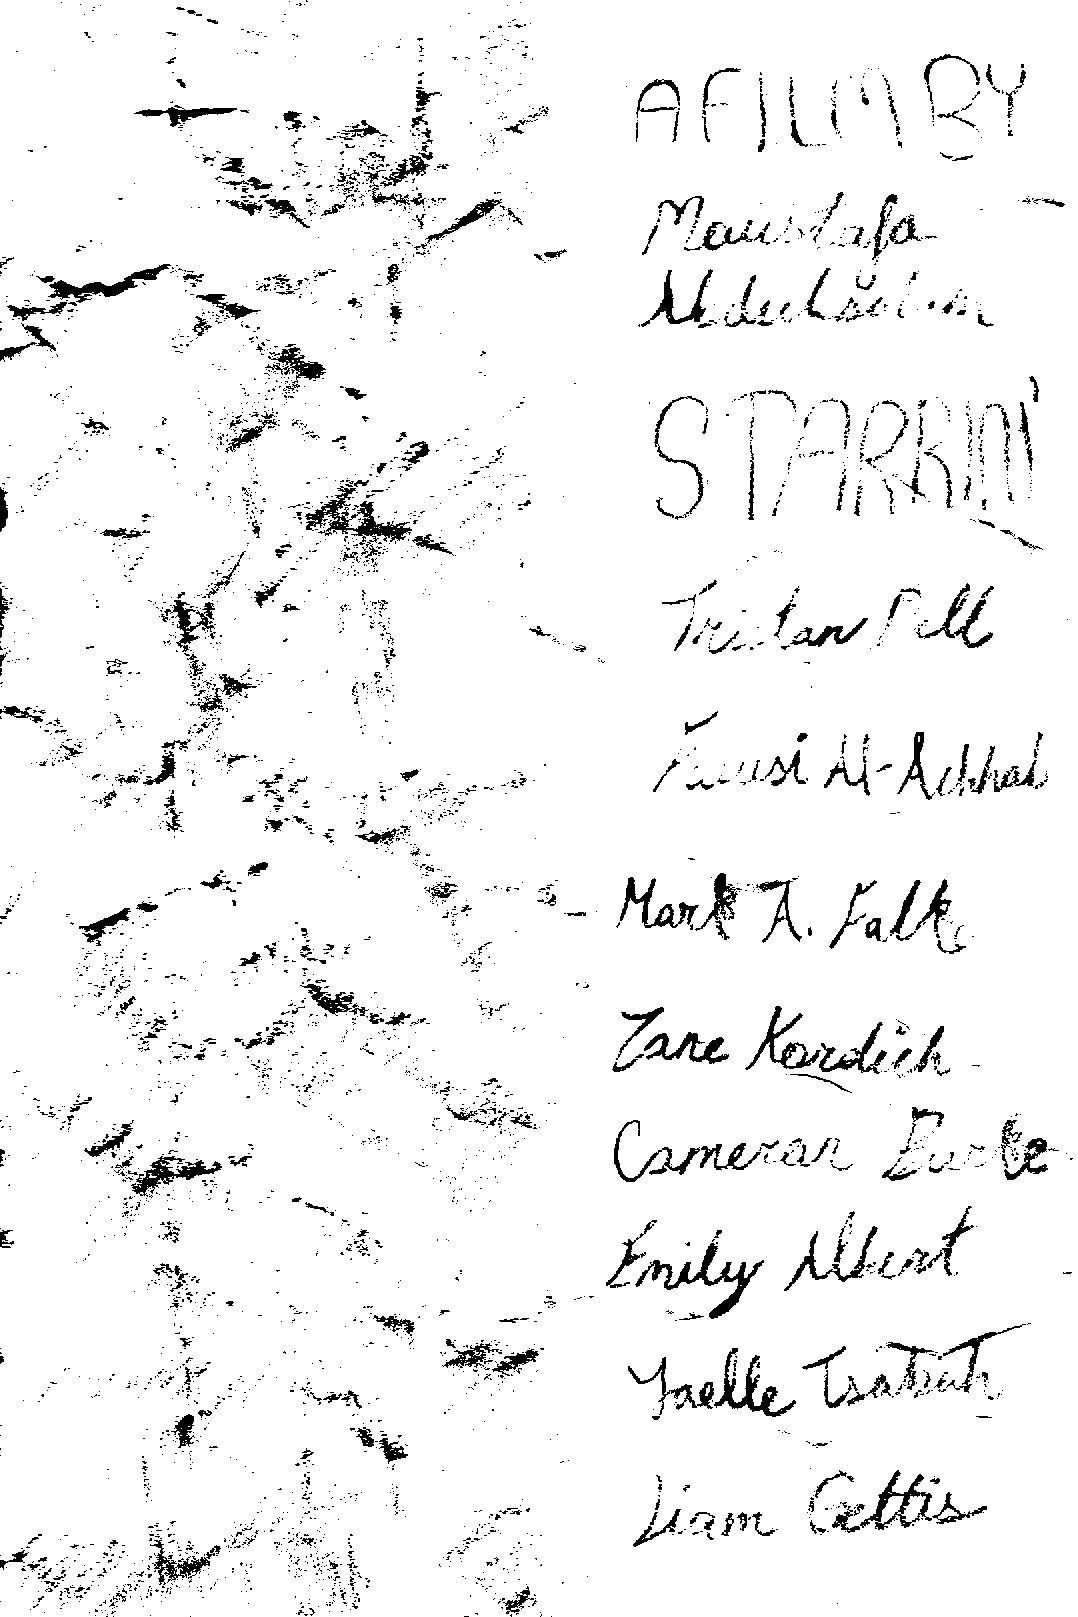 A FILM BY
Moustafa
Abdelsalam
STARRING
Tristan Pell
Fawsi Al-Achhab
Mark A. Falk
Zane Kordich
Cameran Burke
Emily Albert
Yaelle
Liam Gettis